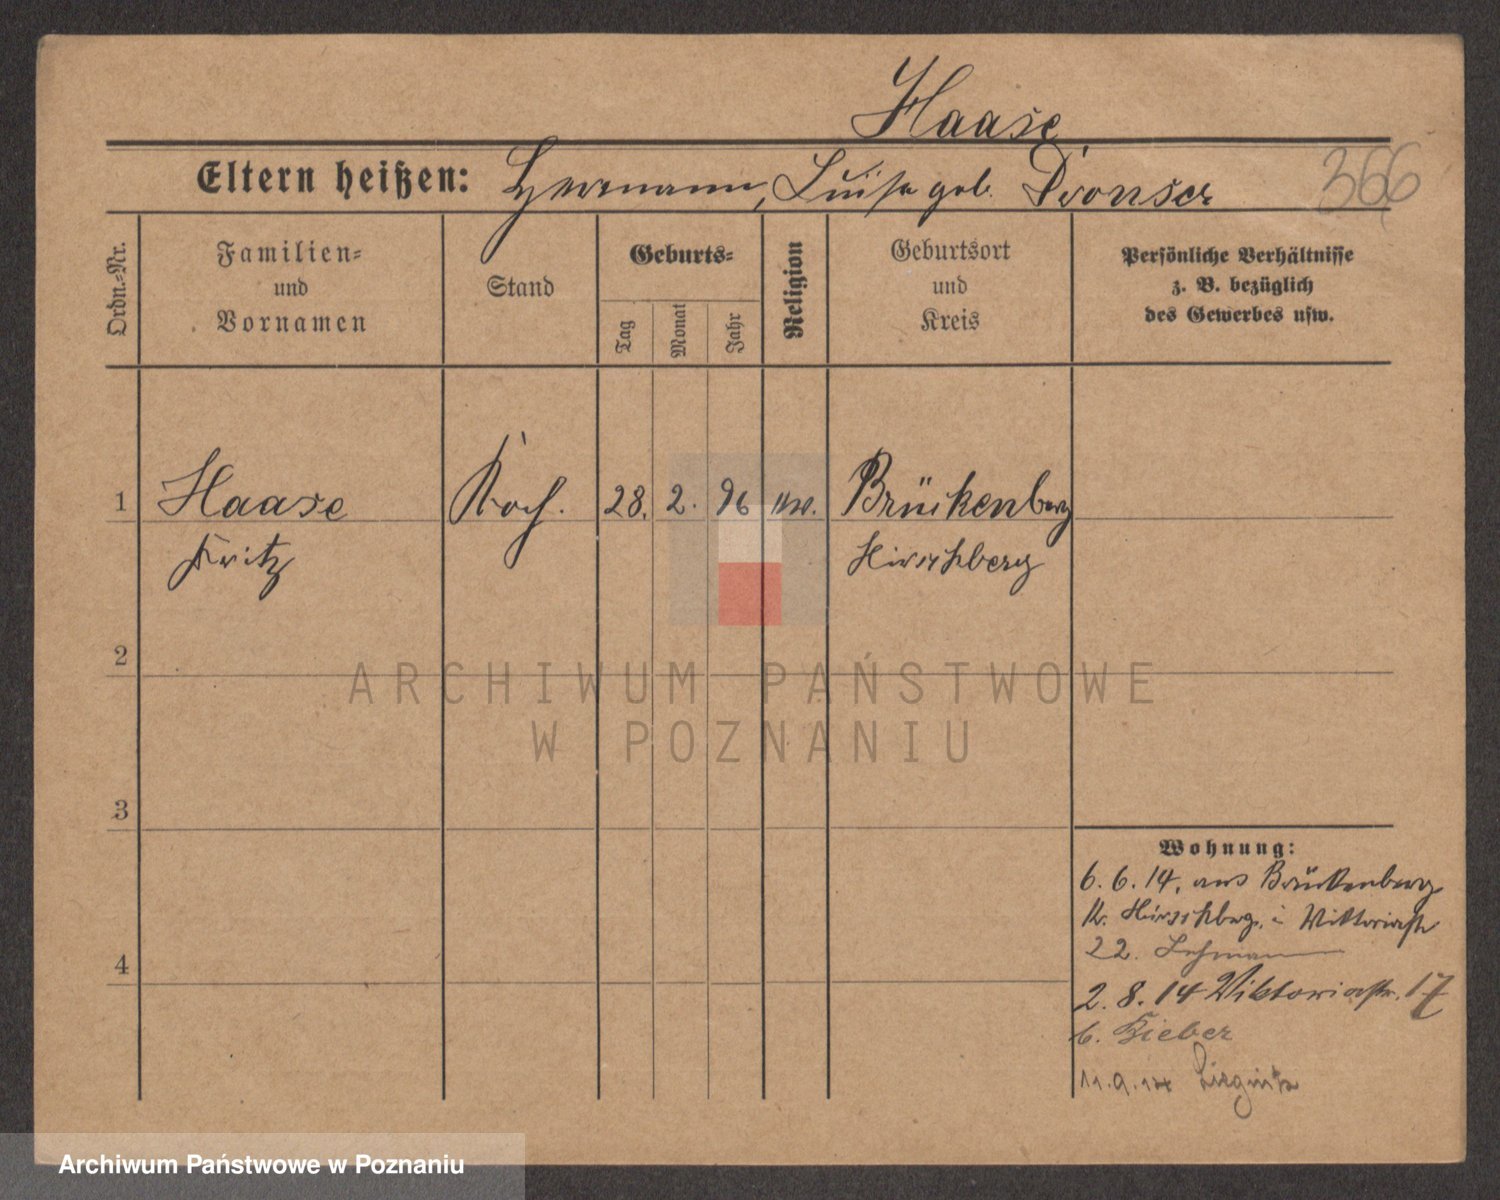 Haase
Eltern heißen: Hermann, Luise geb.
366
Ordn.-Nr.
Familien-
und
Vornamen
Stand
Geburts-
Tag
Monat
Jahr
Religion
Geburtsort
und
Kreis
Persönliche Verhältnisse
z. B. bezüglich
des Gewerbes usw.
1 Haase Koch. 28. 2. 96 Brückenberg
Fritz Hirschberg
2
ARCHIWUM PAŃSTWOWE
W POZNANIU
3
Wohnung:
6. 6. 14. aus Brückenberg
Kr. Hirschberg. i Viktoriastr
22. Lehmann
4
2. 8. 14 Viktoriastr. 17
b. Bieber
11.9.14 Liegnitz
Archiwum Państwowe w Poznaniu